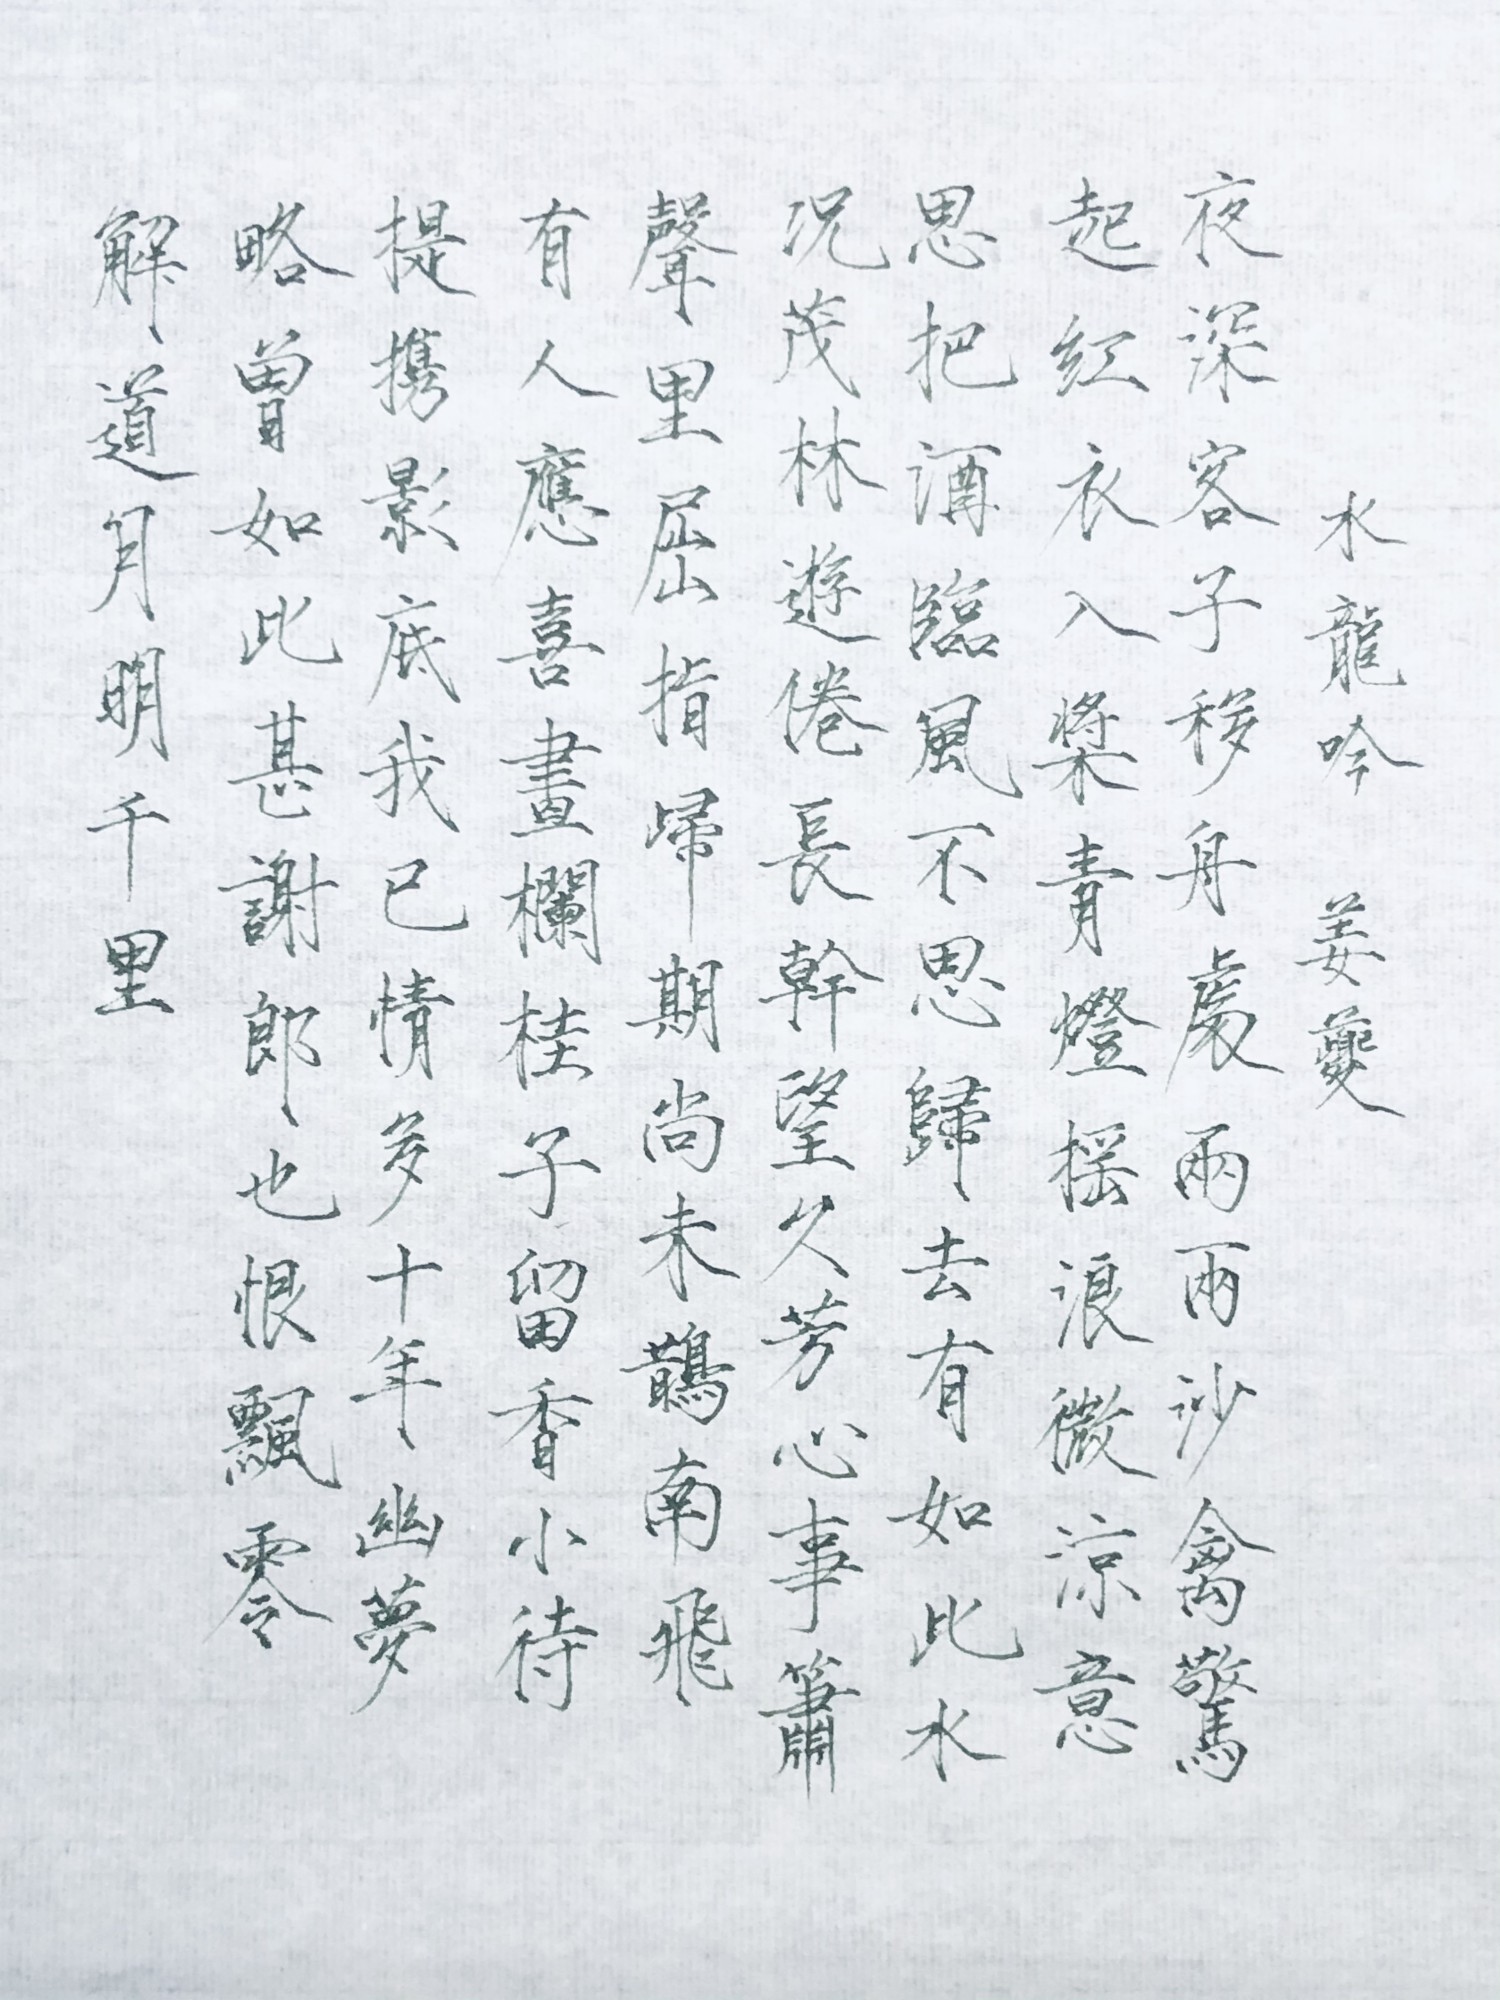 水龍吟 姜夔
夜深客子移舟處兩兩沙禽驚
起紅衣入槳青燈搖浪微涼意
思把酒臨風不思歸去有如此水
況茂林遊倦長幹望久芳心事簫
聲里屈指歸期尚未鵲南飛
有人應喜畫欄桂子留香小待
提攜影底我已情多十年幽夢
略曾如此甚謝郎也恨飄零
解道月明千里